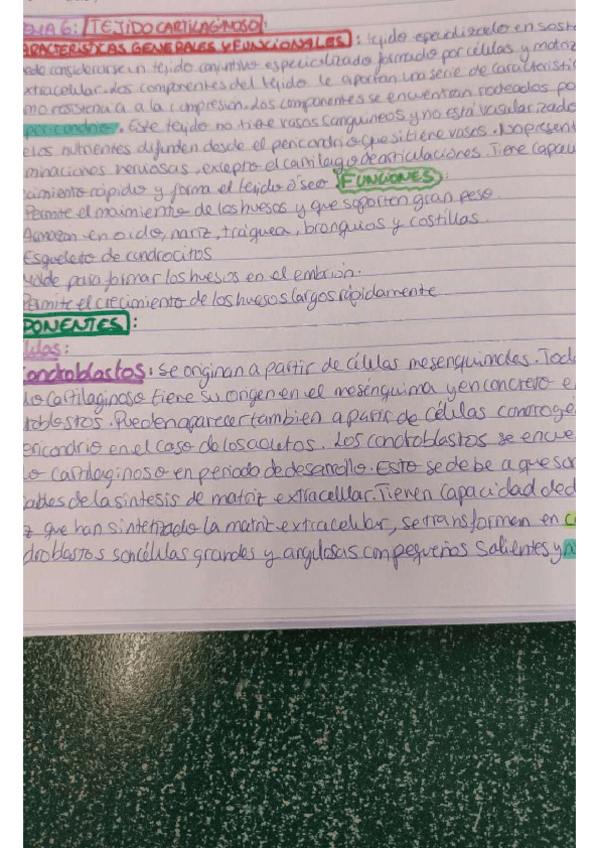 EMA 6: TEJIDO CARTILAGINOSO:
ARACTERÍSTICAS GENERALES Y FUNCIONALES: tejido especializado en soste
edo considerarse un tejido conjuntivo especializado formado por células y matriz
xtracelular. Los componentes del tejido le aportan una serie de característic
mo resistencia a la compresión. Los componentes se encuentran rodeados po
pericondrio. Este tejido no tiene vasos sanguíneos y no está vascularizado
e los nutrientes difunden desde el pericondrio que si tiene vasos. No present
minaciones nerviosas, excepto el cartílago de articulaciones. Tiene capaci
cimiento rápido y forma el tejido óseo. FUNCIONES:
Permite el moimiento de los huesos y que soporten gran peso.
Armazón en oído, nariz, traquea, bronquios y costillas.
Esqueleto de condrocitos
Molde para formar los huesos en el embrión.
Permite el crecimiento de los huesos largos rápidamente
PONENTES:
lulas:
Condroblastos: Se originan a partir de células mesenquimales. Tod
do cartilaginoso tiene su origen en el mesénquima y en concreto e
roblastos. Pueden aparecer tambien a partir de células condroge
ericondrio en el caso de los adultos. Los condroblastos se encue
do cartilaginoso en periodo de desarrollo. Esto se debe a que son
ables de la síntesis de matriz extracelular. Tienen capacidad de d
z que han sintetizado la matriz extracelular, se transforman en c
droblastos son células grandes y angulosas con pequeños salientes y n